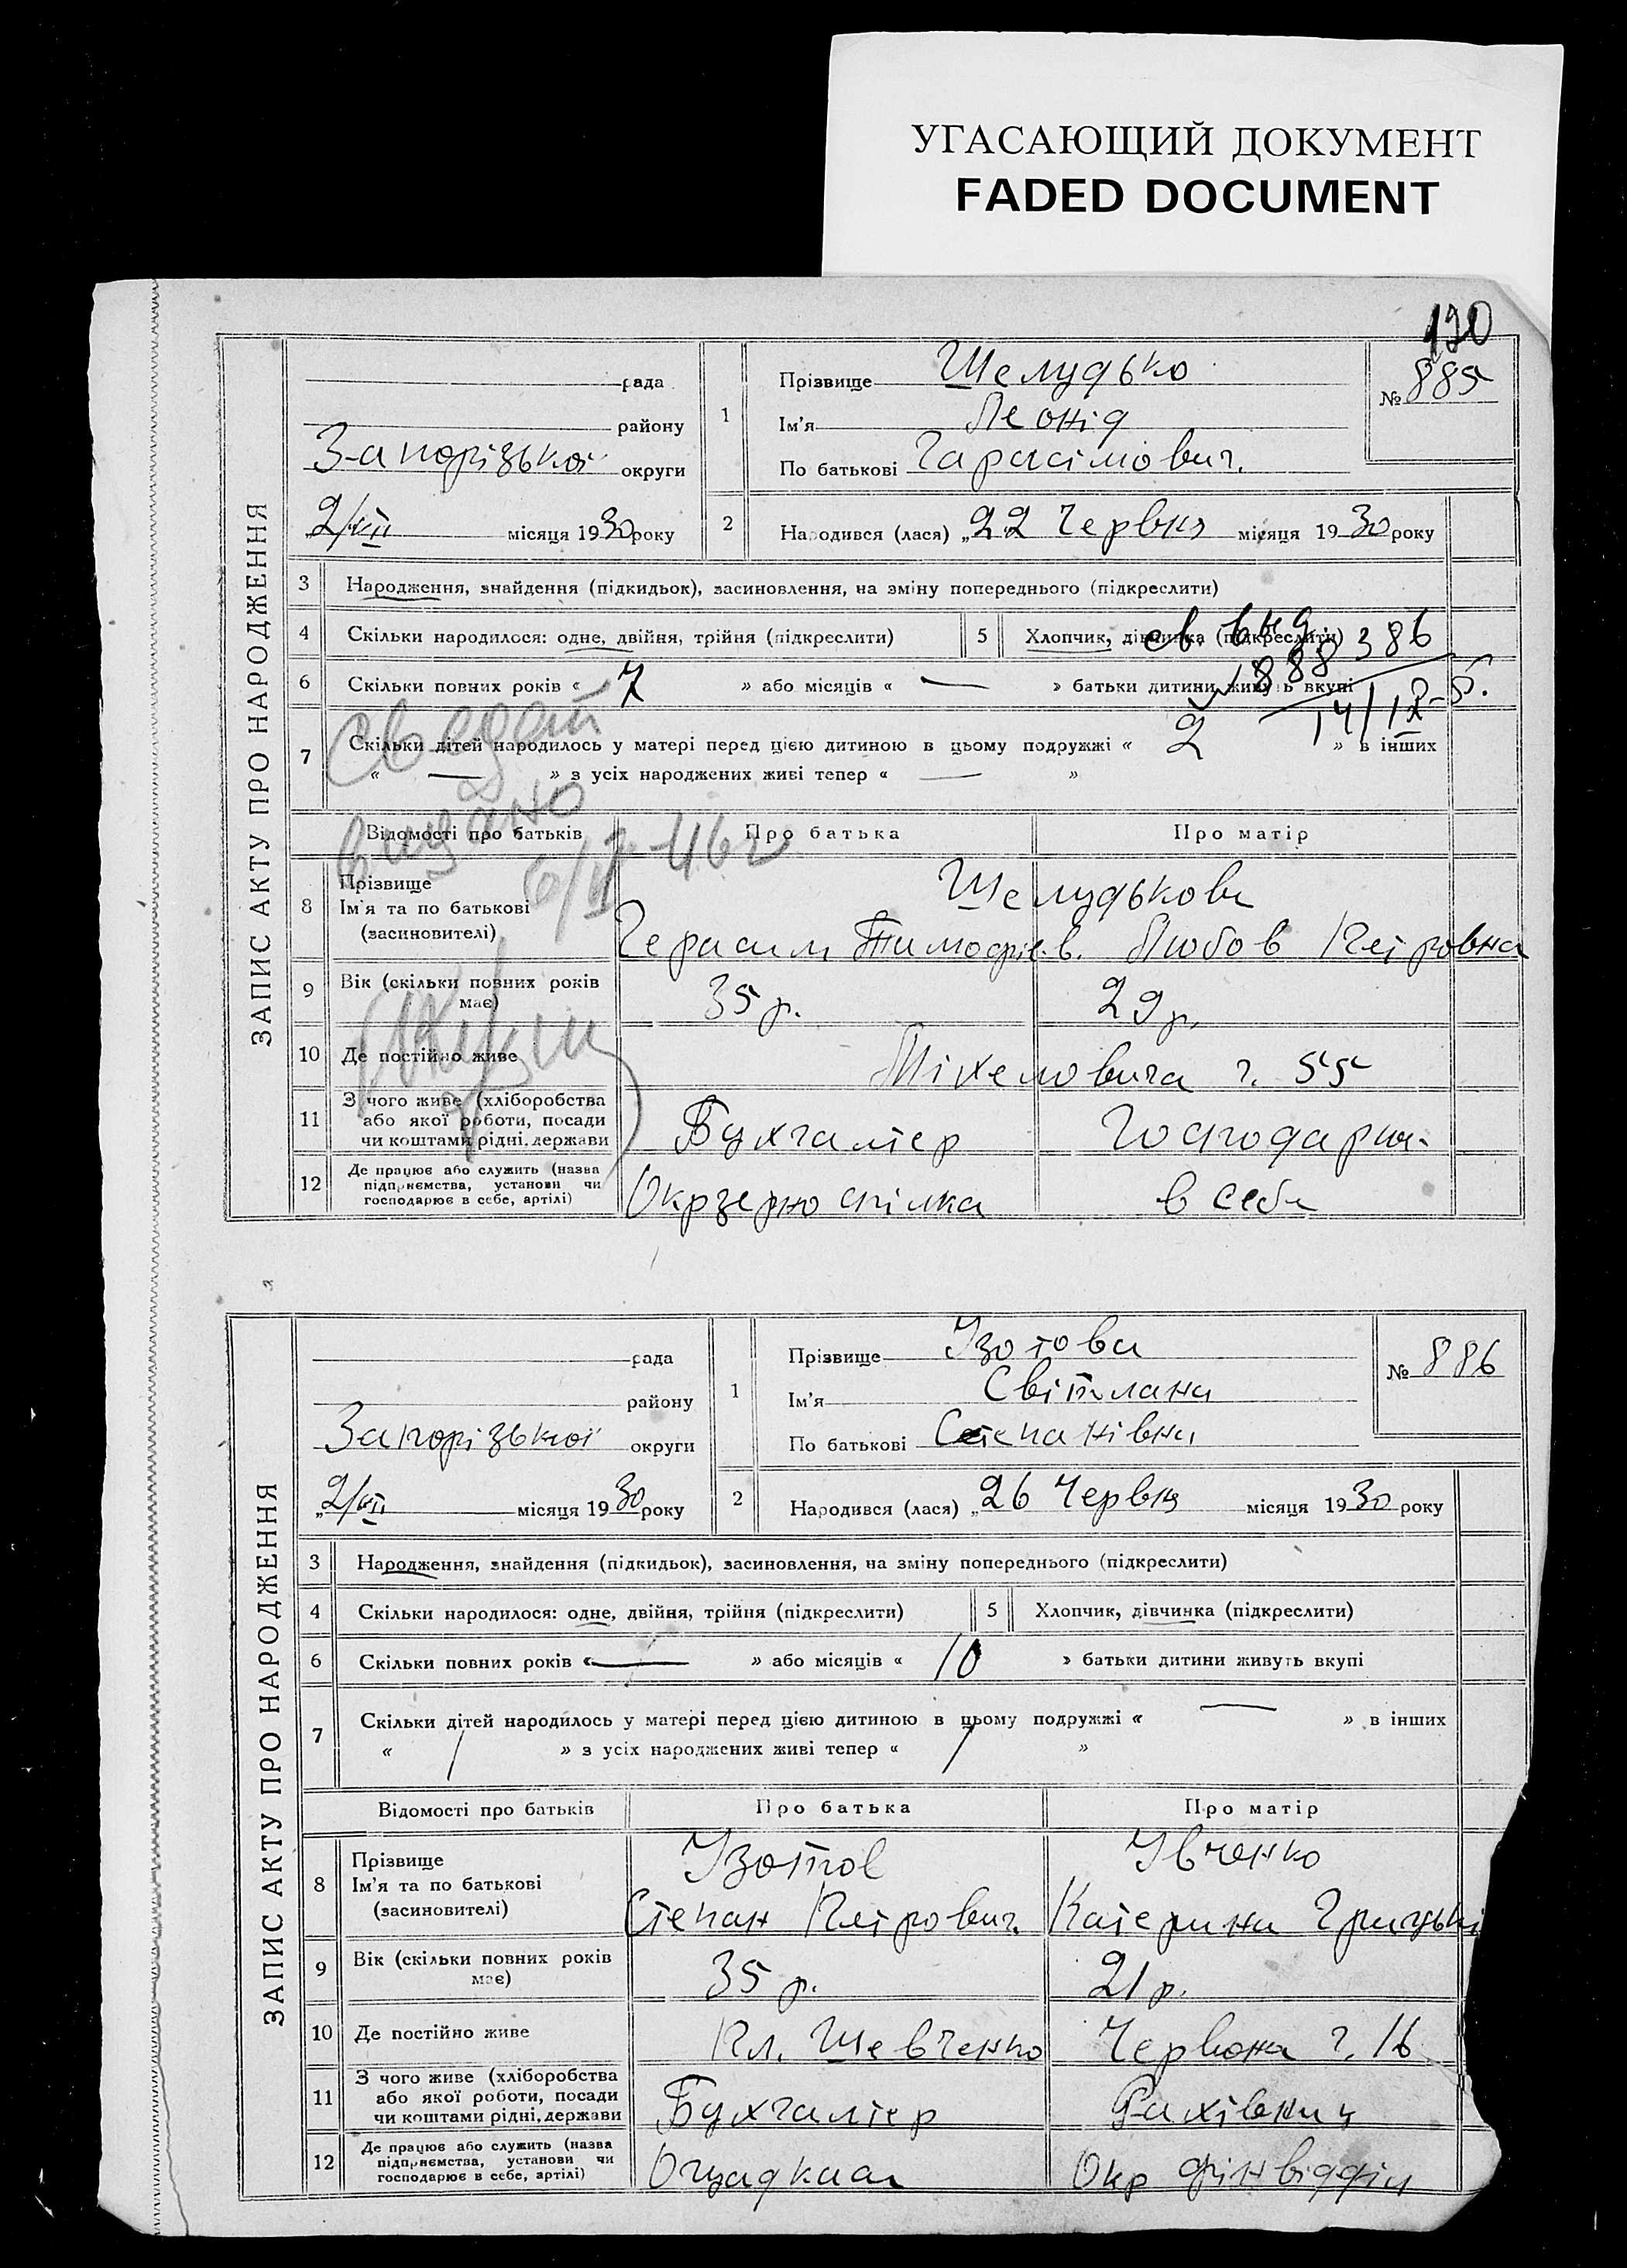 УГАСАЮЩИЙ ДОКУМЕНТ
FADED DOCUMENT
120
ЗАПИС АКТУ ПРО НАРОДЖЕННЯ
рада
району
Запорізької округи
2/VII місяця 1930 року
1
Прізвище Шелудько
Ім'я Леонід
По батькові Гарасімович.
№ 885
2
Народився (лася) „22 Червня місяця 1930 року
3 Народження, знайдення (підкидьок), засиновлення, на зміну попереднього (підкреслити)
4 Скільки народилося: одне, двійня, трійня (підкреслити)
5 Хлопчик, дівчинка (підкреслити)
6 Скільки повних років « 7 » або місяців « — » батьки дитини живуть вкупі
7 Скільки дітей народилось у матері перед цією дитиною в цьому подружжі « 2 » в інших
« — » з усіх народжених живі тепер « — »
386
1888
14/12
Відомості про батьків Про батька Про матір
8 Прізвище
Ім'я та по батькові
(засиновителі)
Шелудькови
Герасим Тимофіев. Любов Петровна
9 Вік (скільки повних років має) 35 р. 29 р.
10 Де постійно живе
ч. 55
11 З чого живе (хліборобства або якої роботи, посади чи коштами рідні, держави Бухгалтер Господарка
12 Де працює або служить (назва підприємства, установи чи господарює в себе, артілі) Окрзерно спілка в себе
46 г
ЗАПИС АКТУ ПРО НАРОДЖЕННЯ
рада
району
Запорізької округи
„2/VII місяця 1930 року
1
Прізвище Ізотова
Ім'я Світлана
По батькові Степанівна
№ 886
2
Народився (лася) „26 Червня місяця 1930 року
3 Народження, знайдення (підкидьок), засиновлення, на зміну попереднього (підкреслити)
4 Скільки народилося: одне, двійня, трійня (підкреслити)
5 Хлопчик, дівчинка (підкреслити)
6 Скільки повних років « — » або місяців « 10 » батьки дитини живуть вкупі
7 Скільки дітей народилось у матері перед цією дитиною в цьому подружжі « — » в інших
« / » з усіх народжених живі тепер « / »
Відомості про батьків Про батька Про матір
8 Прізвище
Ім'я та по батькові
(засиновителі)
Ізотов Івченко
Степан Петрович. Катерина Грицьки
9 Вік (скільки повних років має) 35 р. 21 р.
10 Де постійно живе Пл. Шевченко Червона ч. 16
11 З чого живе (хліборобства або якої роботи, посади чи коштами рідні, держави Бухгалтер Рахівниц
12 Де працює або служить (назва підприємства, установи чи господарює в себе, артілі) Ощадкаса Окр фінвідділ